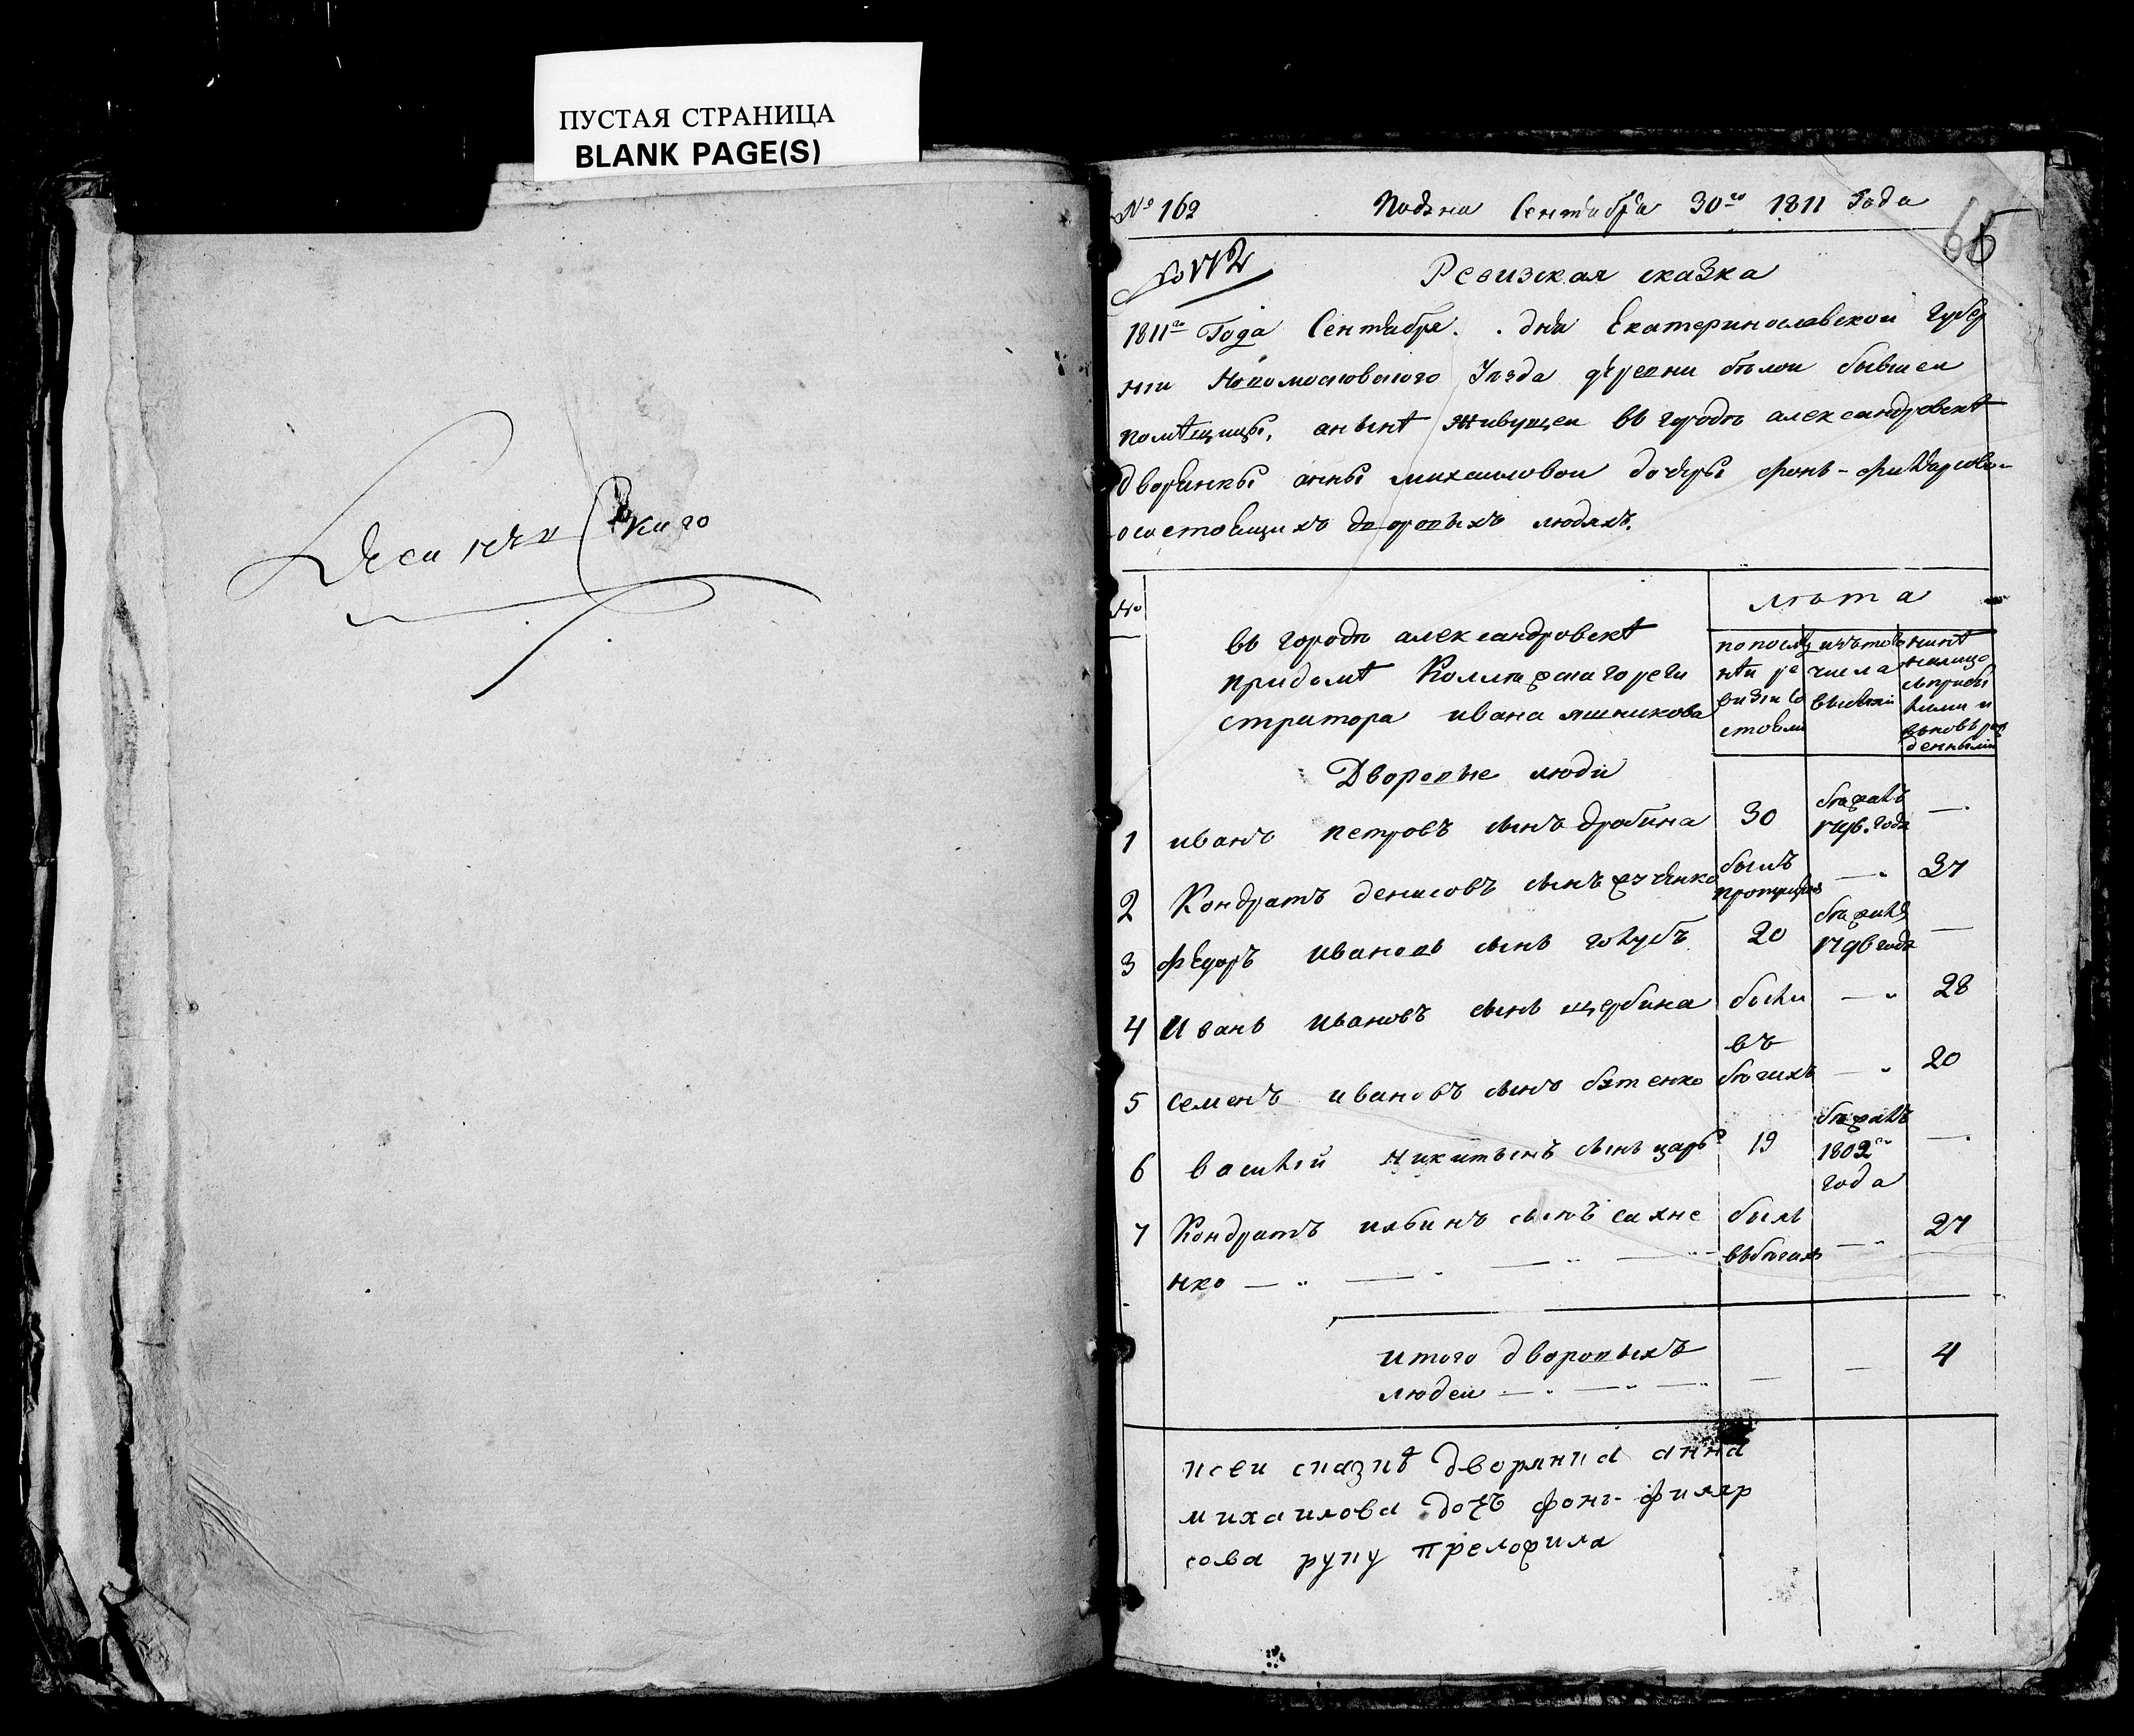 ПУСТАЯ СТРАНИЦА
BLANK PAGE(S)
№ 162
Подана Сентября 30го 1811 Года
65
Ревизская сказка
1811го Года Сентября . . дня Екатеринославской Губер
нии Новомосковского Уезда деревни белой бывшеи
помещицы, аныне живущеи въ городе александровске
дворянкы анны михаиловои дочеры фонъ-филарсово
осостоящихъ дворовыхъ людяхъ.
№
въ городе александровске
придоме Коллежскагореги
стратора ивана яшникова
лета
попослед
неи ре
визии со
стояли
изътого
числа
выбыли
ныне
налицо
Дворовые люди
1 иванъ петровъ сынъ дробина 30 бежалъ 1796. года —
2 Кондратъ денисовъ сынъ былъ пропущенъ — 37
3 федоръ ивановъ сынъ голубъ 20 бежалъ 1796 года —
4 Иванъ ивановъ сынъ щербина были — 28
въ
5 семенъ ивановъ сынъ бятенко бегахъ — 20
6 василий никитынъ сынъ царь 19 бежалъ 1802го года —
7 Кондратъ ильинъ сынъ сахне былъ — 27
нко — — — — въбегахъ
итого дворовыхъ
людеи — — — — — 4
ксеи сказке дворянка анна
михаилова дочь фонъ-филяр
сова руку приложила